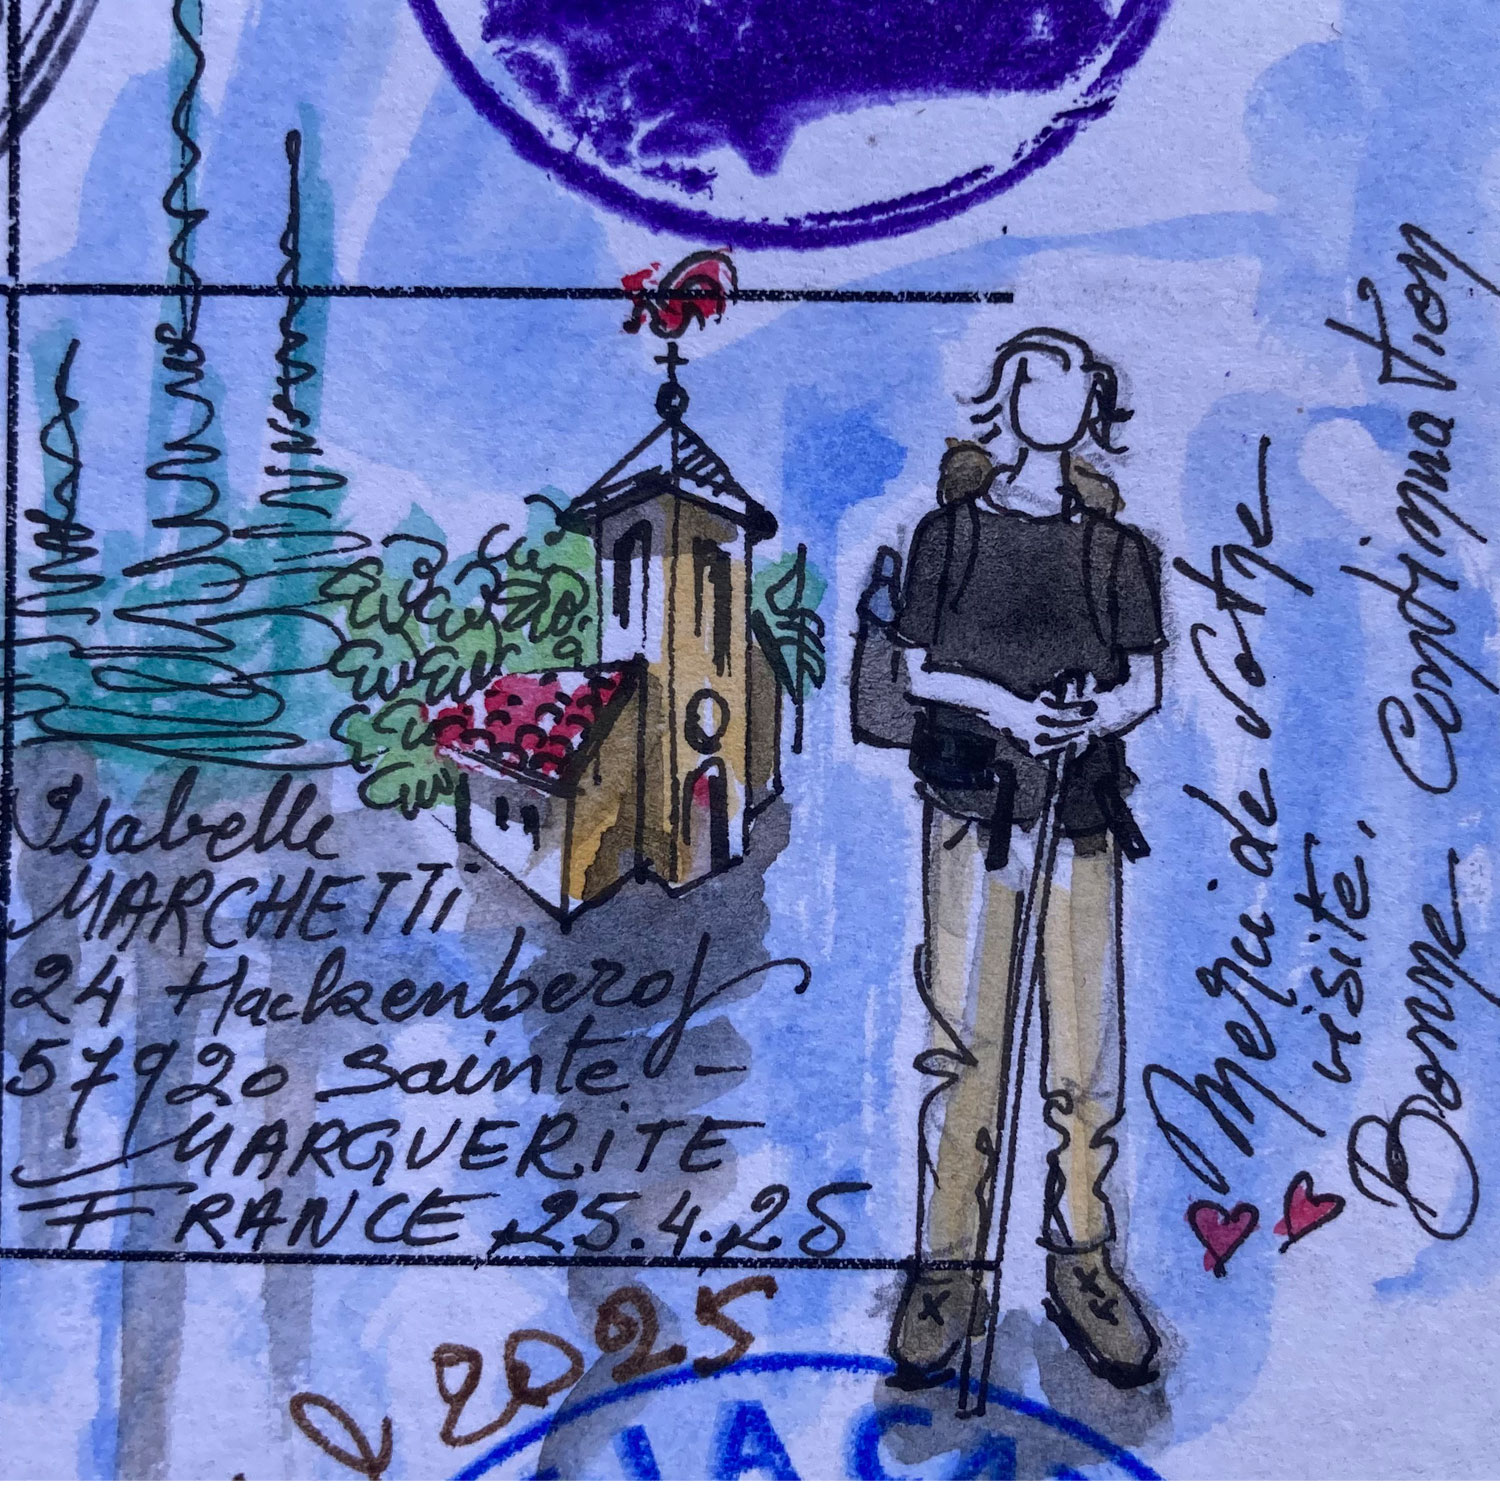 Isabelle
MARCHETTi
24 Hackenberg
57920 Sainte-
MARGUERiTE
FRANCE 25.4.25
Merci de votre
visite.
Bonne Continuation
2025
JAC